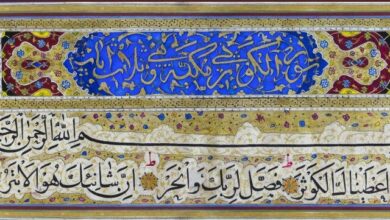 سورة الكوثر مكية وهي ثلاث آيات
بِسْمِ اللهِ الرَّحْمٰنِ الرَّحِ
عْطَيْنَاكَ الْكَوْثَرَ ط فَصَلِّ لِرَبِّكَ وَانْحَرْ ط اِنَّ شَانِئَكَ هُوَ الْاَبْتَرُ